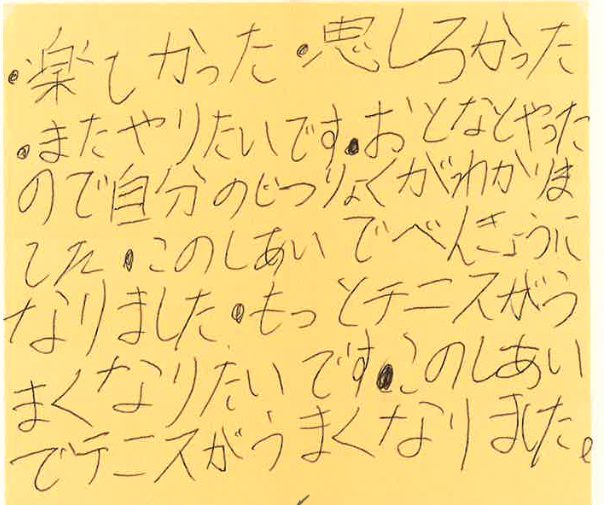 ・楽しかった・思しろかった
・またやりたいです。・おとなとやった
ので自分のじつりょくがわかりま
した・このしあいでべんきょうに
なりました・もっとテニスがう
まくなりたいです・このしあい
でテニスがうまくなりました。